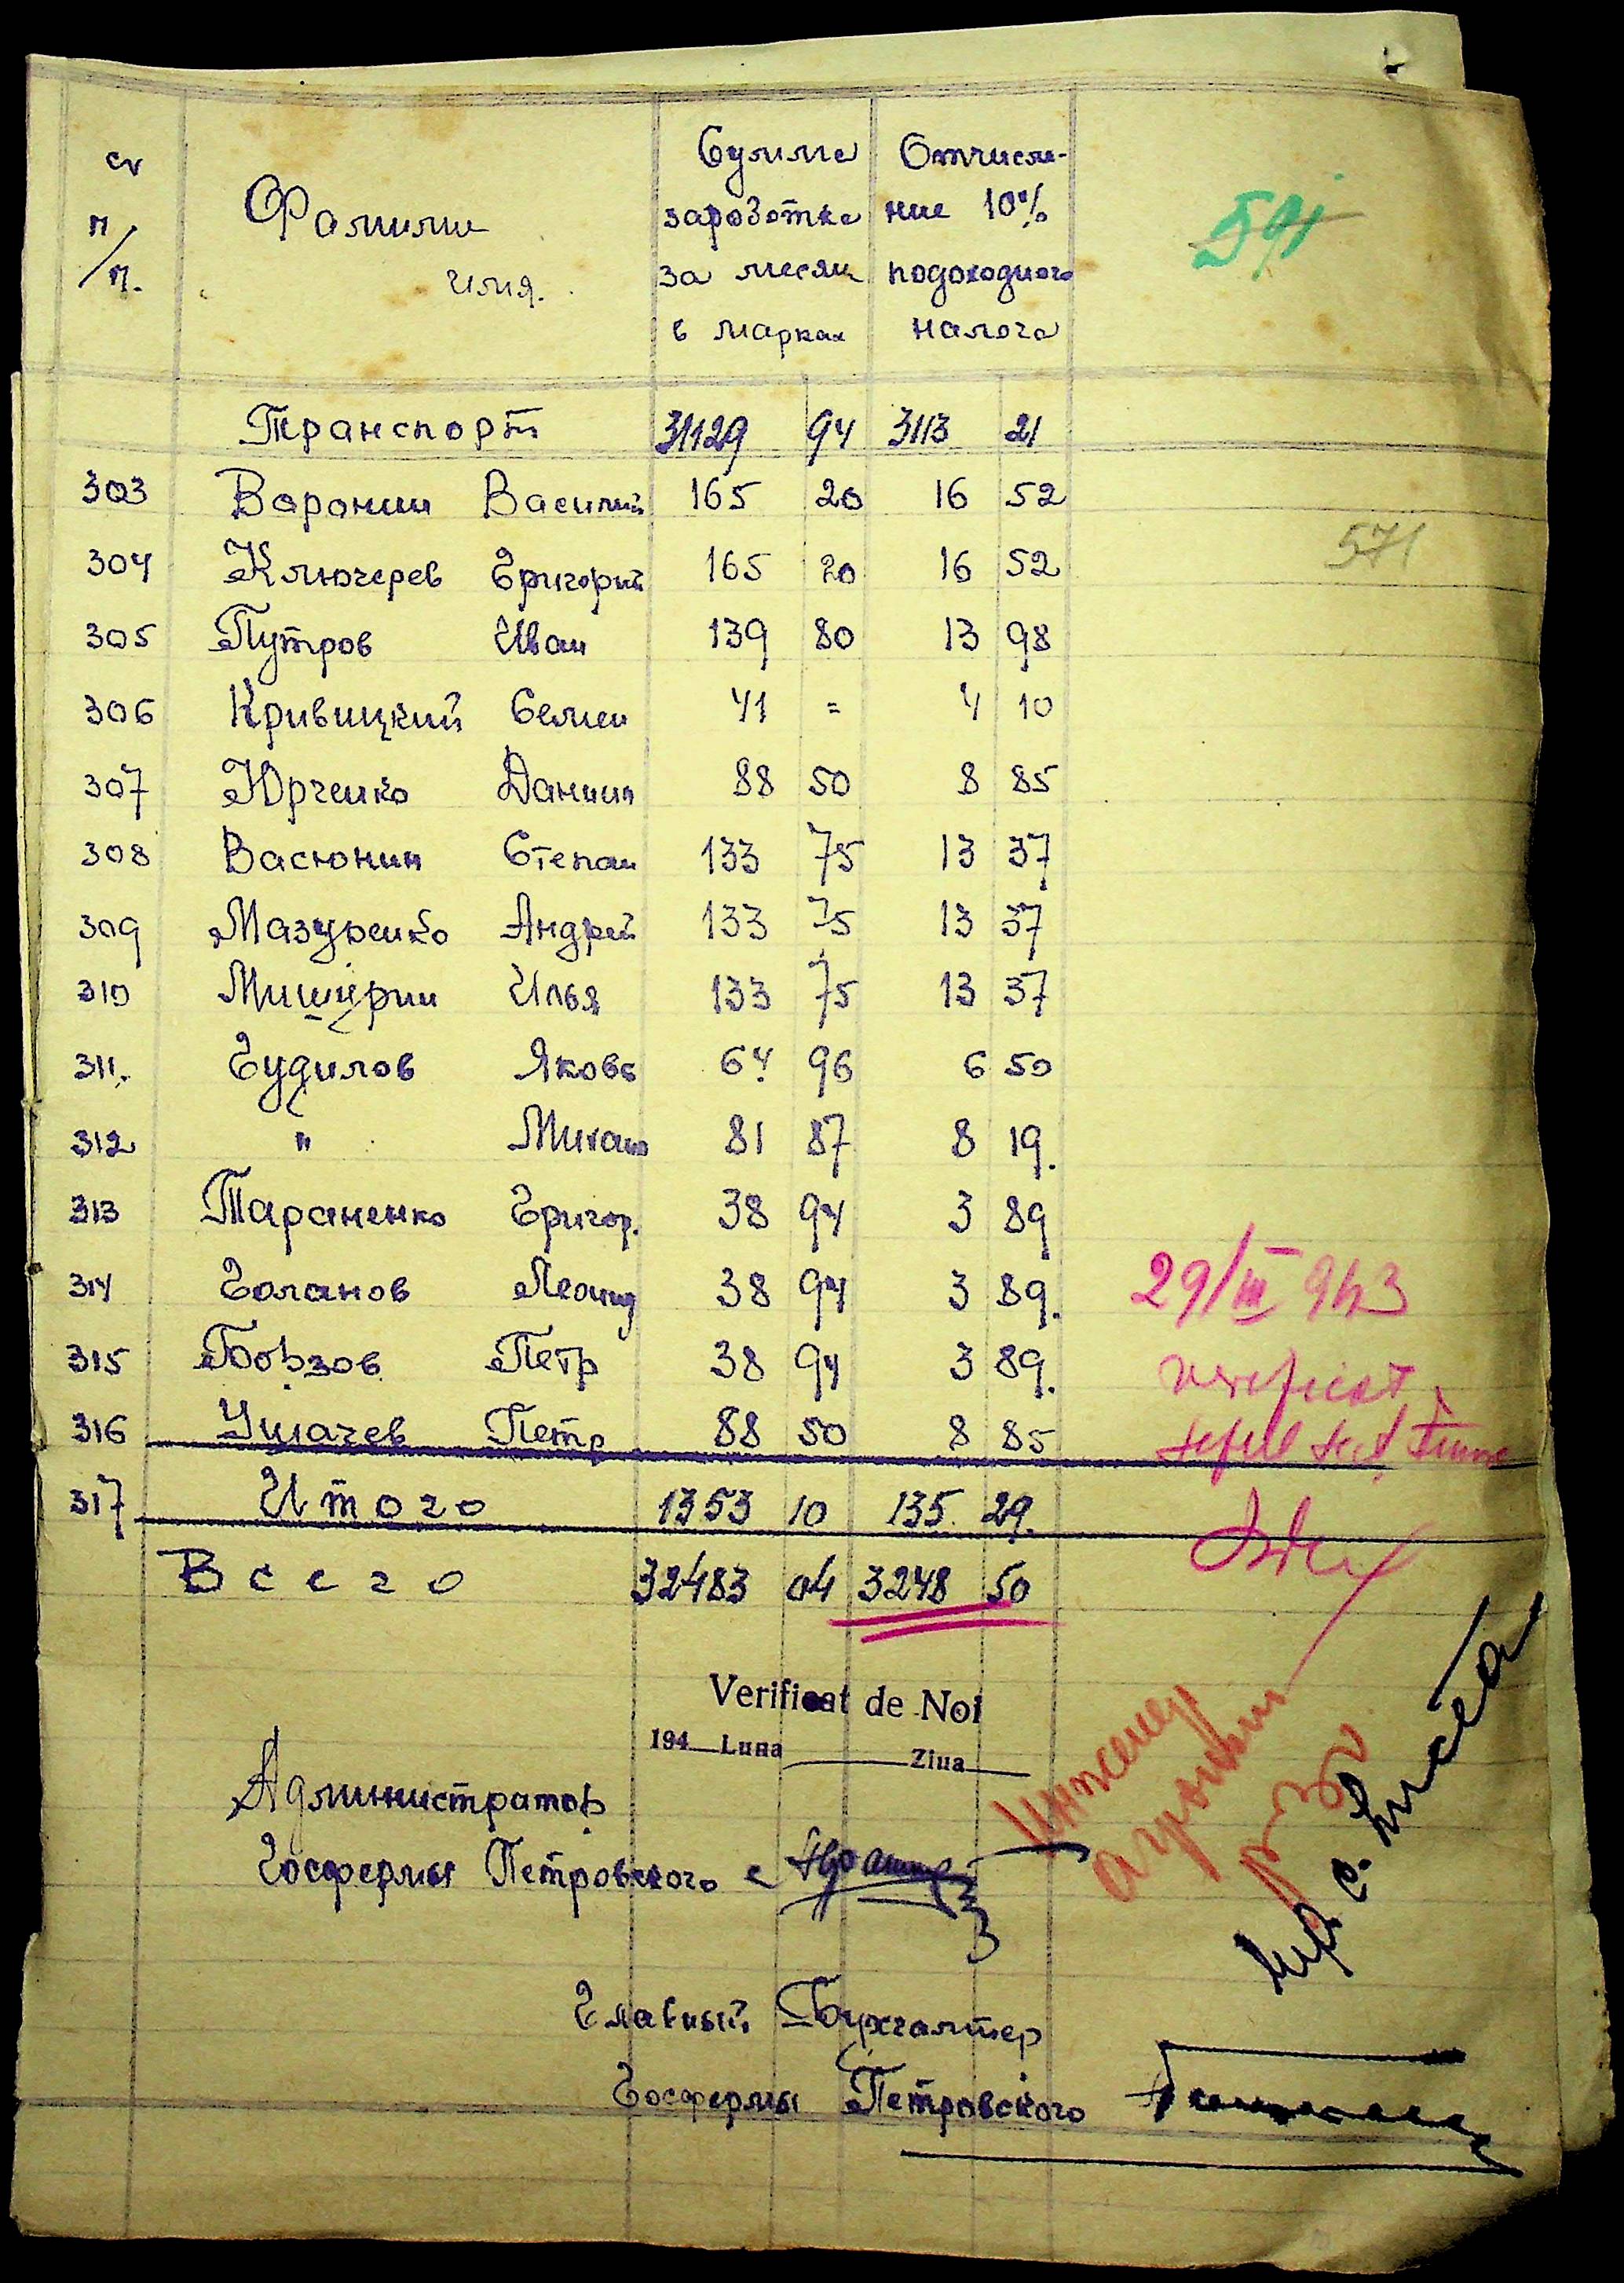 п/п. Фамилия имя. Сумма заработка за месяц в марках Отчисление 10% подоходного налога
591
Транспорт 31129 94 3113 21
303 Воронин Василий 165 20 16 52
571
304 Ключерев Григорий 165 20 16 52
305 Путров Иван 139 80 13 98
306 Кривицкий Семен 41 = 4 10
307 Юрченко Даниил 88 50 8 85
308 Васюнин Степан 133 75 13 37
309 Мазуренко Андрей 133 75 13 37
310 Мищерин Илья 133 75 13 37
311. Гудилов Яковъ 64 96 6 50
312 " Михаил 81 87 8 19.
313 Тараненко Григор. 38 94 3 89
314 Голанов Леонид 38 94 3 89.
315 Борзов Петр 38 94 3 89.
316 Ушачев Петр 88 50 8 85
29/III 943
verificat
317 Итого 1353 10 135. 29.
Всего 32483 04 3248 50
Verificat de Noi
194 Luna Ziua
Администратор
Госфермы Петровского
Главный Бухгалтер
Госфермы Петровского